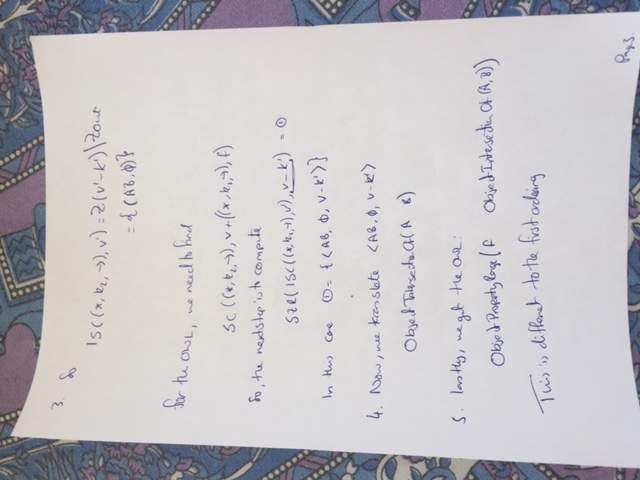 3. So
ISC((*, k2, →), v') = Z(v'-k')\Zout
= {(AB, ϕ)}
for the OWL, we need to find
SC((*, k2, →), v+((*, k2, →), f)
So, the next step is to compute
SZR(ISC((*, k2, →), v), v-k') = ①
In this case ① = {⟨AB, ϕ, v-k'⟩}
4. Now, we translate ⟨AB, ϕ, v-k'⟩
ObjectIntersectionOf(A B)
5. lastly, we get the OWL:
ObjectPropertyRange(f ObjectIntersectionOf(A, B))
This is different to the first ordering
Page 3.